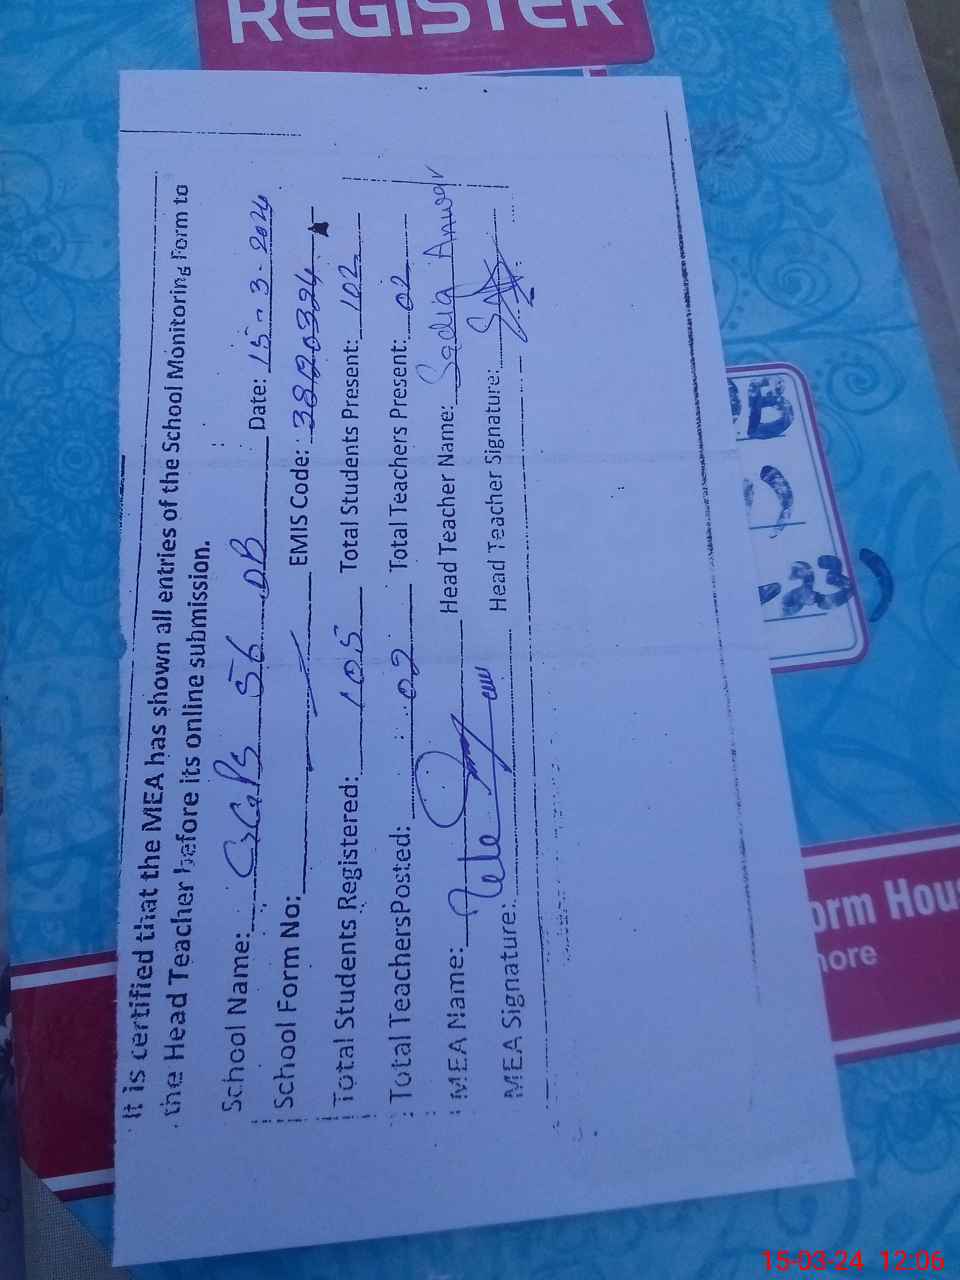 REGISTER
It is certified that the MEA has shown all entries of the School Monitoring Form to
the Head Teacher before its online submission.
School Name: GGPS 56 DB Date: 15-3-2024
School Form No: EMIS Code: 38120324
Total Students Registered: 105 Total Students Present: 102
Total Teachers Posted: 02 Total Teachers Present: 02
MEA Name: Head Teacher Name: Sadia Anwar
MEA Signature: Head Teacher Signature:
DB
23
orm Hou
hore
15-03-24 12:06